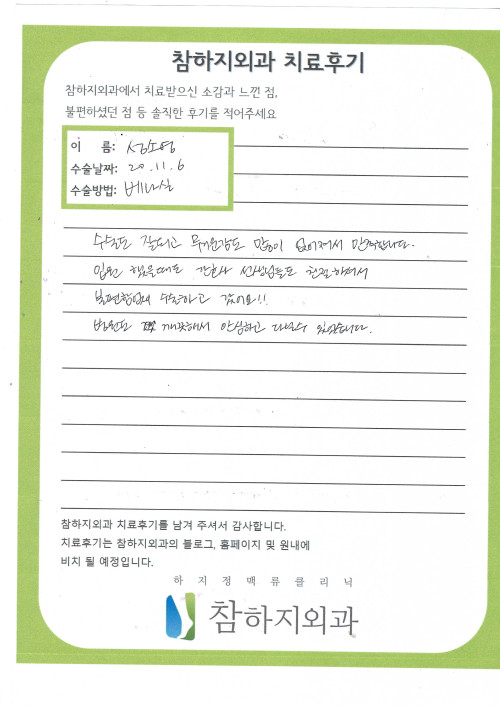 참하지외과 치료후기
참하지외과에서 치료받으신 소감과 느낀 점,
불편하셨던 점 등 솔직한 후기를 적어주세요
이 름:
수술날짜: 20.11.6
수술방법: 베나실
수술도 잘되고 무거운감도 많이 없어져서 만족합니다.
입원 했을때도 간호사 선생님들도 친절하셔서
불편함없이 수술하고 갔어요!!
병원도 깨끗해서 안심하고 다닐수 있었습니다.
참하지외과 치료후기를 남겨 주셔서 감사합니다.
치료후기는 참하지외과의 블로그, 홈페이지 및 원내에
비치 될 예정입니다.
하지정맥류클리닉
참하지외과